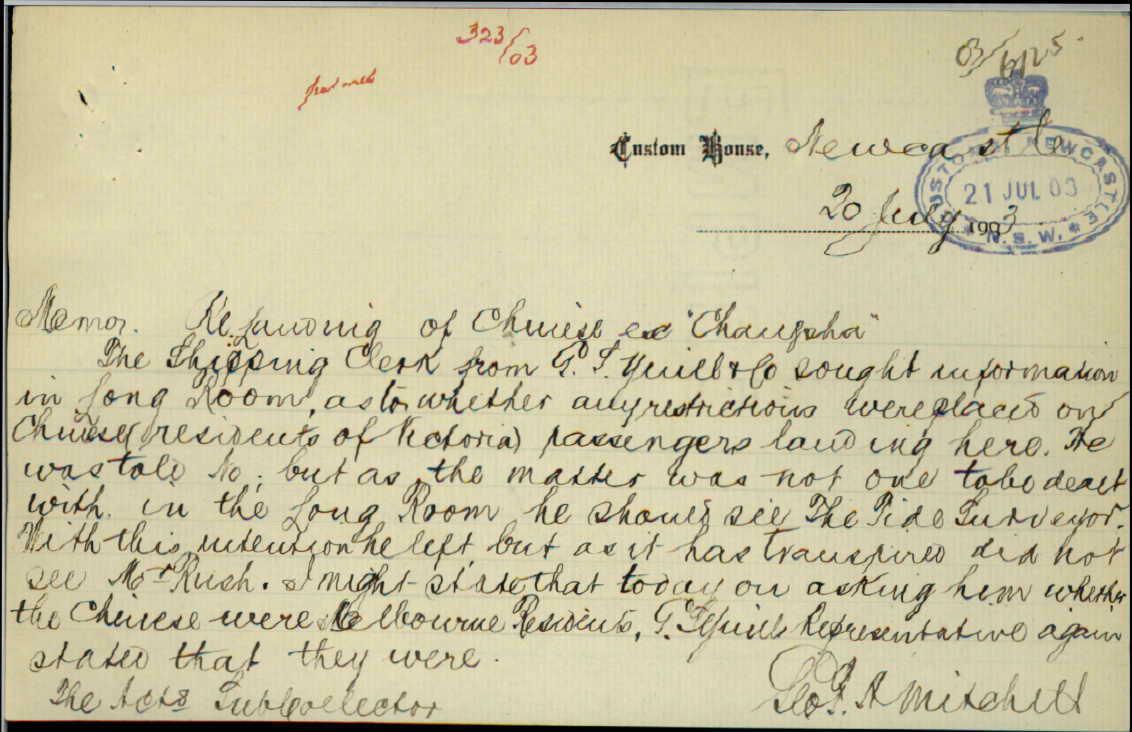 323/03
03/6125
Custom House, Newcastle
CUSTOMS NEWCASTLE N.S.W.
21 JUL 03
20 July 1903
Memo. Re Landing of Chinese ex "Changsha"
The Shipping Clerk from G. S. Yuill & Co sought information
in Long Room, as to whether any restrictions were placed on
Chinese (residents of Victoria) passengers landing here. He
was told No; but as the matter was not one to be dealt
with in the Long Room he should see The Tide Surveyor.
With this intention he left but as it has transpired did not
see Mr Rush. I might state that today on asking him whether
the Chinese were Melbourne Residents, G. S. Yuill Representative again
stated that they were.
Geo. F. A Mitchell
The Actg SubCollector